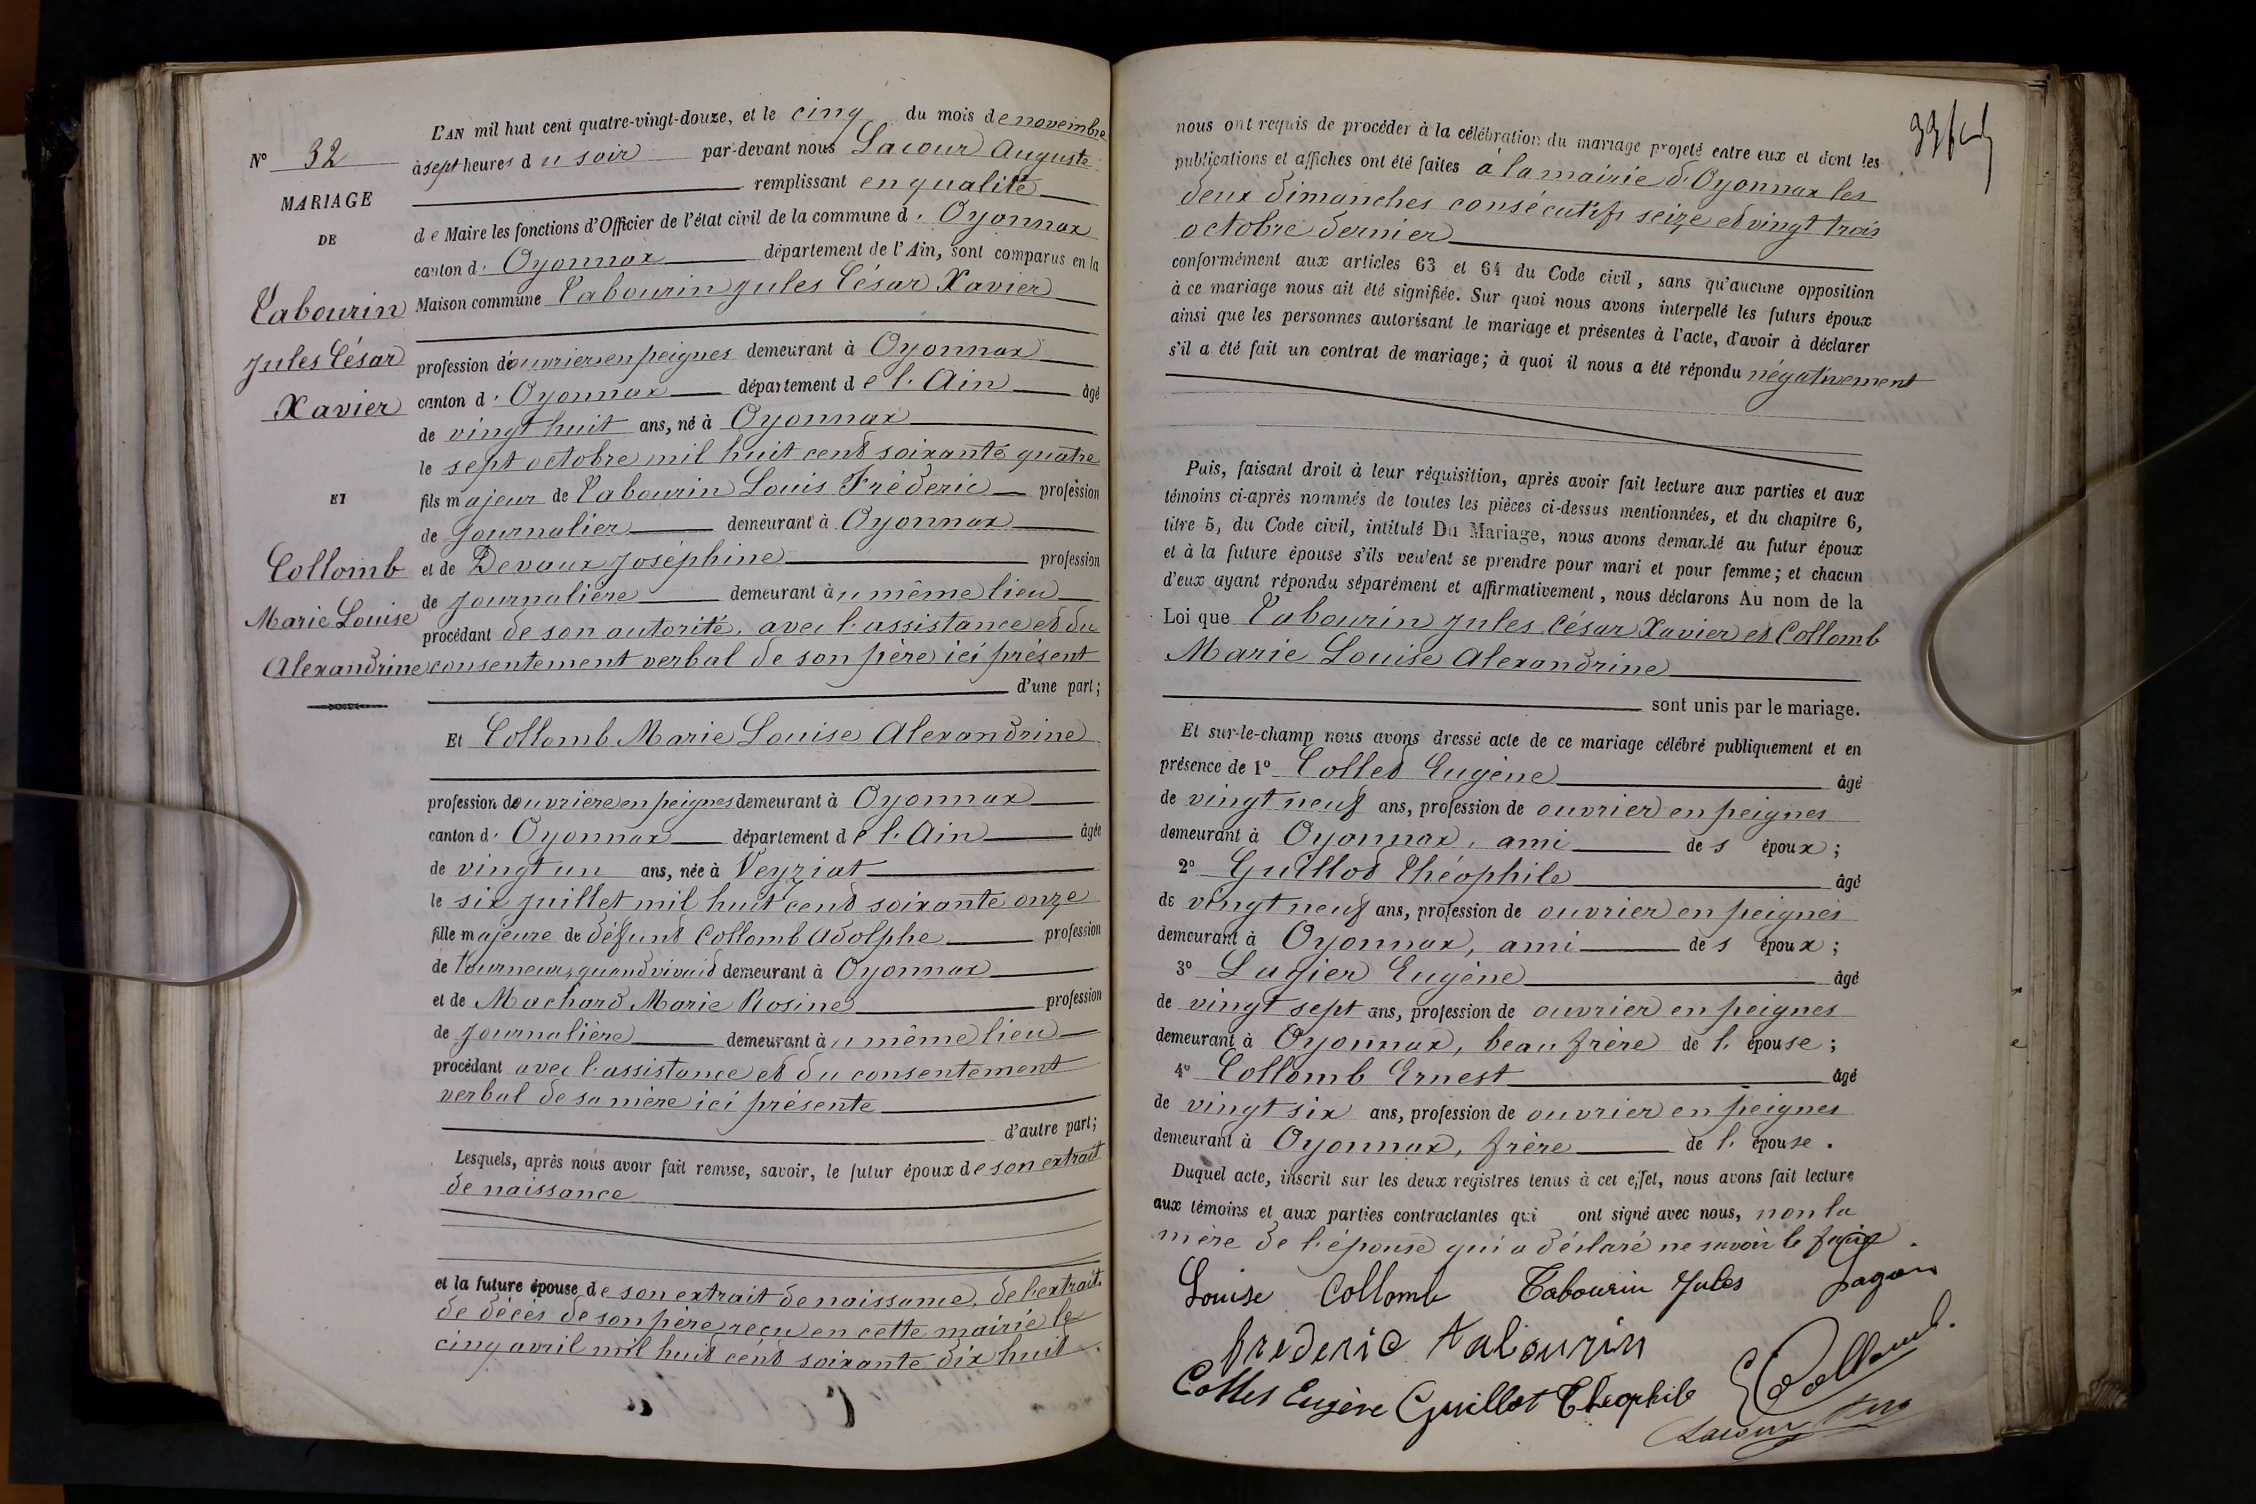 N° 32
MARIAGE
DE
Tabourin
Jules César
Xavier
ET
Collomb
Marie Louise
Alexandrine
L'AN mil huit cent quatre-vingt-douze, et le cinq du mois de novembre
à sept heures du soir par-devant nous Lacour Auguste
remplissant en qualité
de Maire les fonctions d'Officier de l'état civil de la commune d'Oyonnax
canton d'Oyonnax département de l'Ain, sont comparus en la
Maison commune Tabourin Jules César Xavier
profession d'ouvrier en peignes demeurant à Oyonnax
canton d'Oyonnax département de l'Ain âgé
de vingt huit ans, né à Oyonnax
le sept octobre mil huit cent soixante quatre
fils majeur de Tabourin Louis Fréderic profession
de journalier demeurant à Oyonnax
et de Devaux Joséphine profession
de journalière demeurant au même lieu
procédant de son autorité, avec l'assistance et du
consentement verbal de son père ici présent
d'une part;
Et Collomb Marie Louise Alexandrine
profession d'ouvrière en peignes demeurant à Oyonnax
canton d'Oyonnax département de l'Ain âgée
de vingt un ans, née à Veyziat
le six juillet mil huit cent soixante onze
fille majeure de défunt Collomb Adolphe profession
de tourneur, quand vivait demeurant à Oyonnax
et de Machard Marie Rosine profession
de journalière demeurant au même lieu
procédant avec l'assistance et du consentement
verbal de sa mère ici présente
d'autre part;
Lesquels, après nous avoir fait remise, savoir, le futur époux de son extrait
de naissance
et la future épouse de son extrait de naissance, de l'extrait
de décès de son père reçu en cette mairie le
cinq avril mil huit cent soixante dix huit.
nous ont requis de procéder à la célébration du mariage projeté entre eux et dont les
publications et affiches ont été faites à la mairie d'Oyonnax les
deux dimanches consécutifs seize et vingt trois
octobre dernier
conformément aux articles 63 et 64 du Code civil, sans qu'aucune opposition
à ce mariage nous ait été signifiée. Sur quoi nous avons interpellé les futurs époux
ainsi que les personnes autorisant le mariage et présentes à l'acte, d'avoir à déclarer
s'il a été fait un contrat de mariage; à quoi il nous a été répondu négativement
Puis, faisant droit à leur réquisition, après avoir fait lecture aux parties et aux
témoins ci-après nommés de toutes les pièces ci-dessus mentionnées, et du chapitre 6,
titre 5, du Code civil, intitulé Du Mariage, nous avons demandé au futur époux
et à la future épouse s'ils veulent se prendre pour mari et pour femme; et chacun
d'eux ayant répondu séparément et affirmativement, nous déclarons Au nom de la
Loi que Tabourin Jules César Xavier et Collomb
Marie Louise Alexandrine
sont unis par le mariage.
Et sur-le-champ nous avons dressé acte de ce mariage célébré publiquement et en
présence de 1° Collet Eugène âgé
de vingt neuf ans, profession de ouvrier en peignes
demeurant à Oyonnax, ami des époux;
2° Guillot Théophile âgé
de vingt neuf ans, profession de ouvrier en peignes
demeurant à Oyonnax, ami des époux;
3° Lugier Eugène âgé
de vingt sept ans, profession de ouvrier en peignes
demeurant à Oyonnax, beau frère de l'épouse;
4° Collomb Ernest âgé
de vingt six ans, profession de ouvrier en peignes
demeurant à Oyonnax, frère de l'épouse.
Duquel acte, inscrit sur les deux registres tenus à cet effet, nous avons fait lecture
aux témoins et aux parties contractantes qui ont signé avec nous, non la
mère de l'épouse qui a déclaré ne savoir le faire.
Louise Collomb Tabourin Jules
frederic tabourin
Collet Eugène Guillot Théophile E Collomb.
Lacour